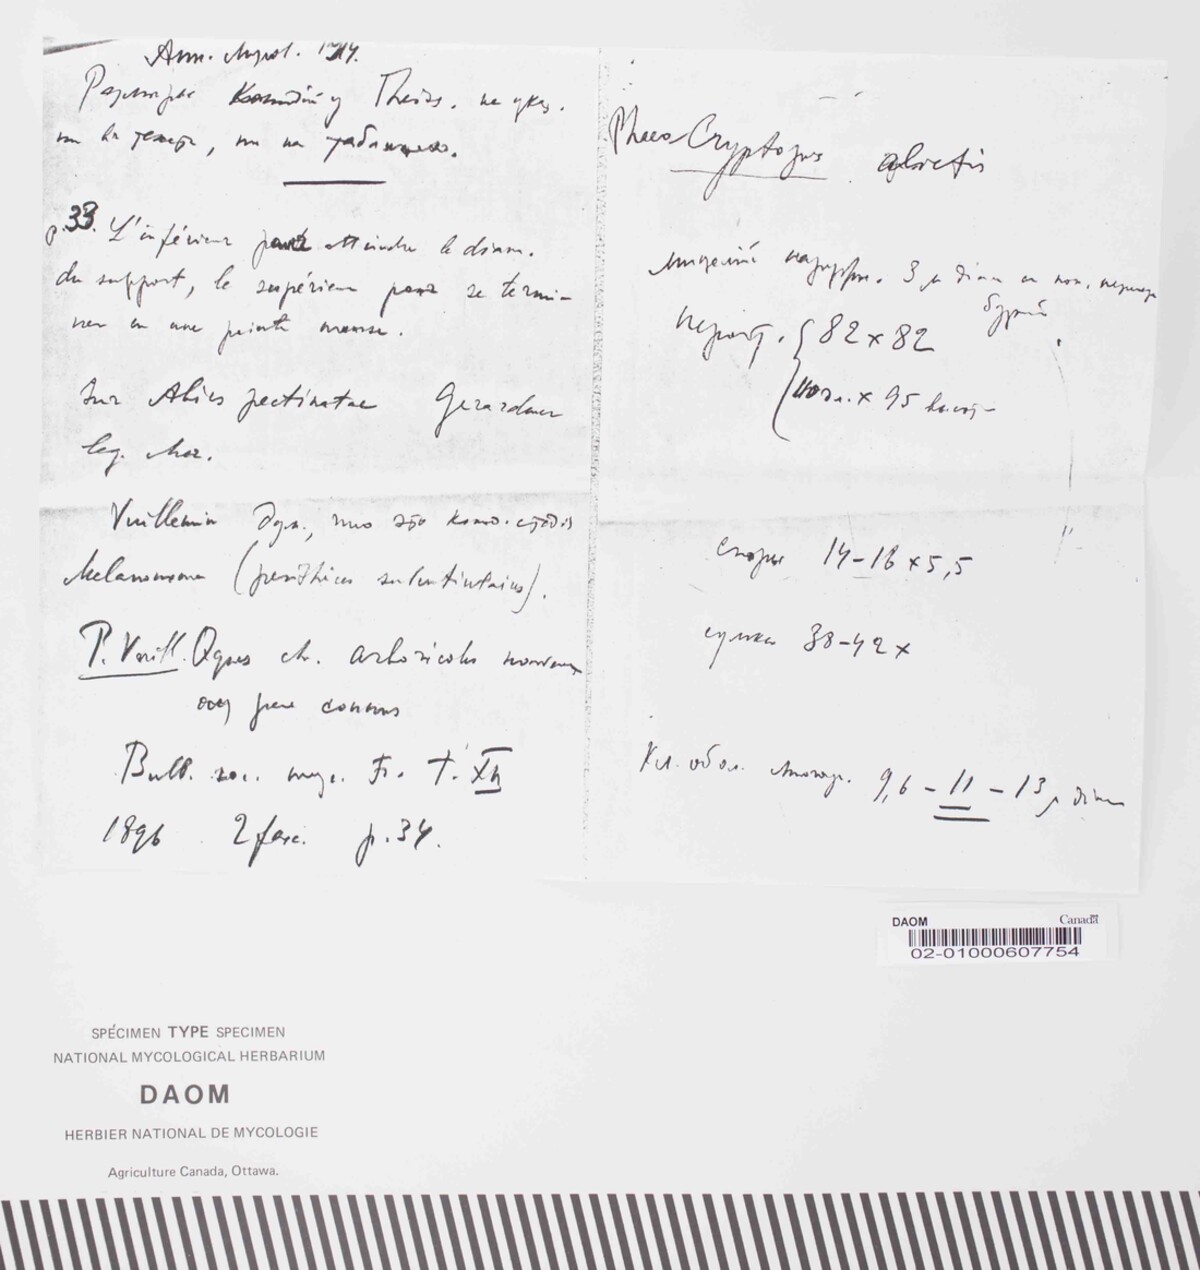 Ann. Mycol. 1914.
у Theiss. не указ.
ни в тексте, ни на таблицах.
p. 33. L'inférieur peut atteindre le diam.
du support, le supérieur peut se termi-
ner en une pointe mousse.
Sur Abies pectinatae Gerardmer
leg. Mer.
Vuillemin что это
Melanomma (périthèces subcutitaires).
P. Vuill. arboricoles nouveaux
ou peu connus
Bull. soc. myc. Fr. T. XII
1896 2 fasc. p. 34.
Phaeo Cryptopus abietis
Мицелий наружн. 3 μ diam
бурый
перит. 82 x 82
110 дл. x 95 высот
споры 14-16 x 5,5
сумка 38-42 x
Кл. обол. 9,6 - 11 - 13 μ diam
DAOM Canada
02-01000607754
SPÉCIMEN TYPE SPECIMEN
NATIONAL MYCOLOGICAL HERBARIUM
DAOM
HERBIER NATIONAL DE MYCOLOGIE
Agriculture Canada, Ottawa.